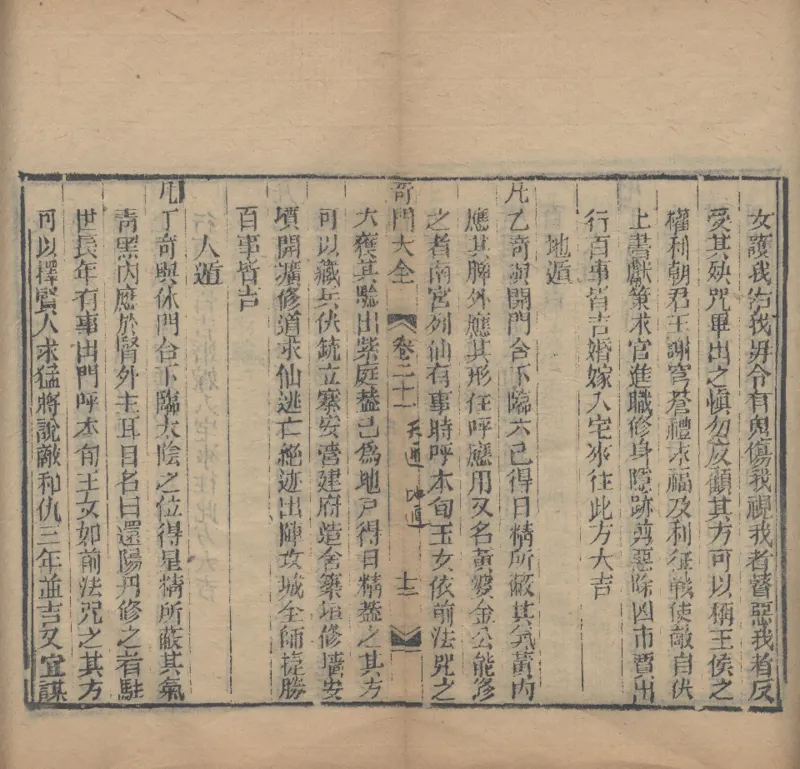 女護我佑我毋令有鬼傷我視我者瞽惡我者反
受其殃咒畢出之慎勿反顧其方可以稱王侯之
權利朝君王謝穹蒼禮求福及利征戰使敵自伏
上書獻策求官進職修身隱跡剪惡除凶市賈出
行百事皆吉婚嫁入宅來往此方大吉
地遁
凡乙奇與開門合下臨六己得日精所蔽其氣黃內
應其脾外應其形任呼應用又名黃婆金公能修
之者南宮列仙有事時呼本旬玉女依前法咒之
奇門大全 卷二十一 天遁 地遁 十三
大獲其驗出紫庭蓋己為地戶得日精蓋之其方
可以藏兵伏銃立寨安營建府造舍築垣修墻安
墳開壙修道求仙逃亡絕迹出陣攻城全師㨗勝
百事皆吉
人遁
凡丁奇與休門合下臨太陰之位得星精所蔽其氣
青黑內應於腎外主耳目名曰還陽丹修之者駐
世長年有事出門呼本旬玉女如前法咒之其方
可以擇賢人求猛將說敵和仇三年並吉又宜謀